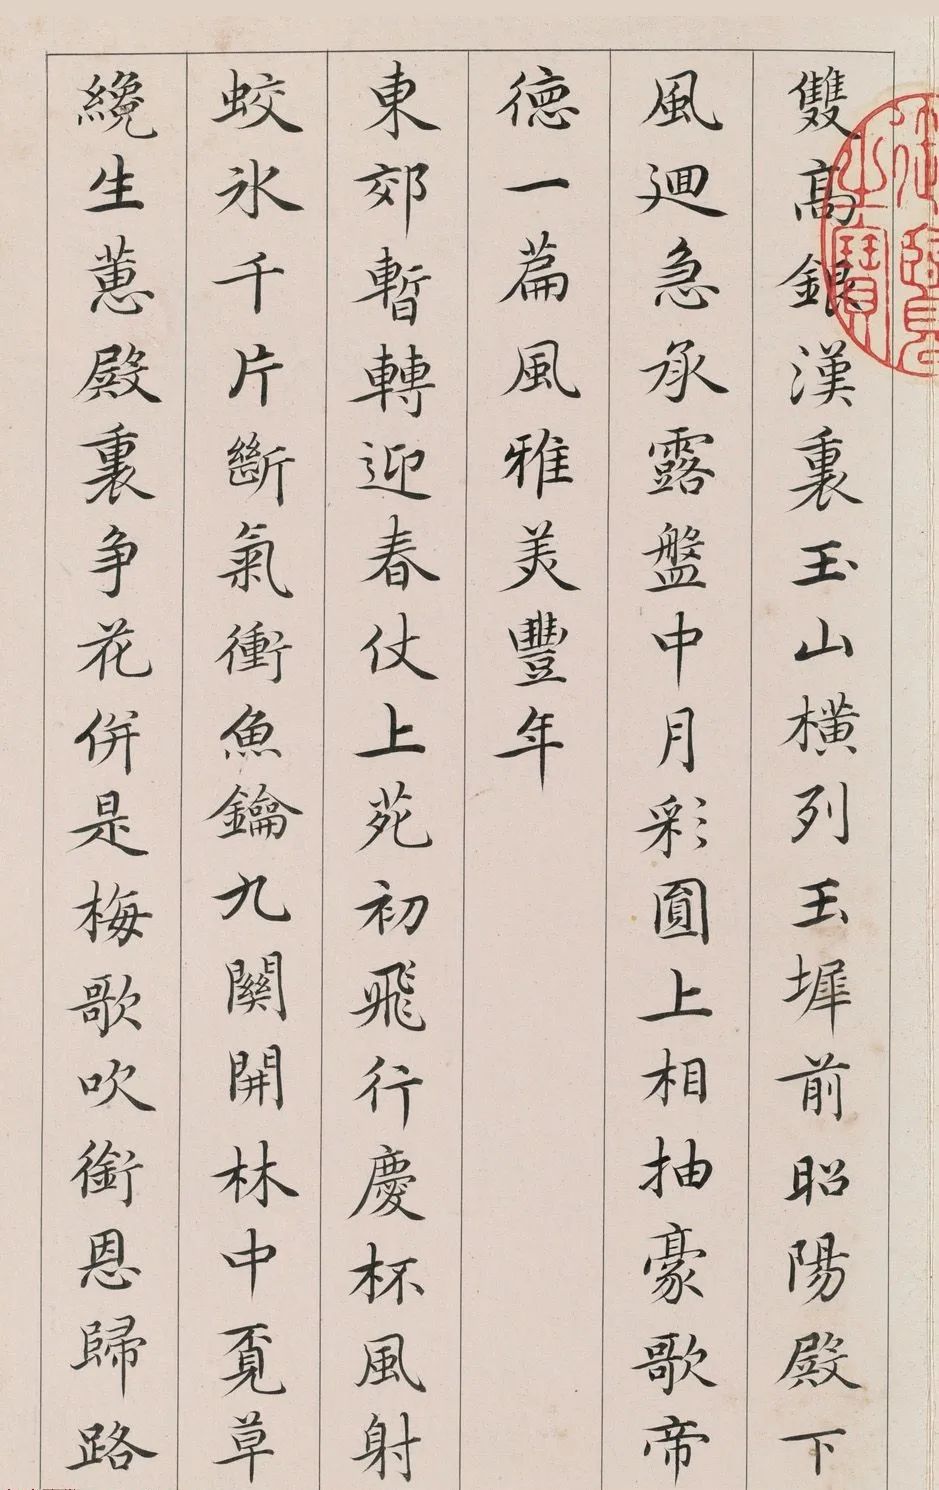 雙髙銀漢裏玉山橫列玉墀前昭陽殿下
風廻急承露盤中月彩圓上相抽豪歌帝
德一篇風雅美豐年
東郊暫轉迎春仗上苑初飛行慶杯風射
蛟氷千片斷氣衝魚鑰九關開林中覔草
纔生蕙殿裏争花併是梅歌吹銜恩歸路
御覽
之寶